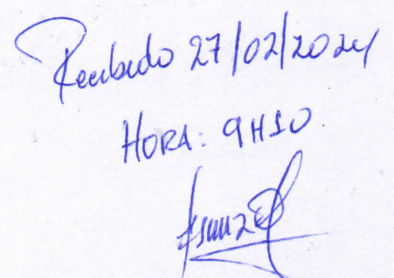 Recibido 27/02/2024
HORA: 9H10